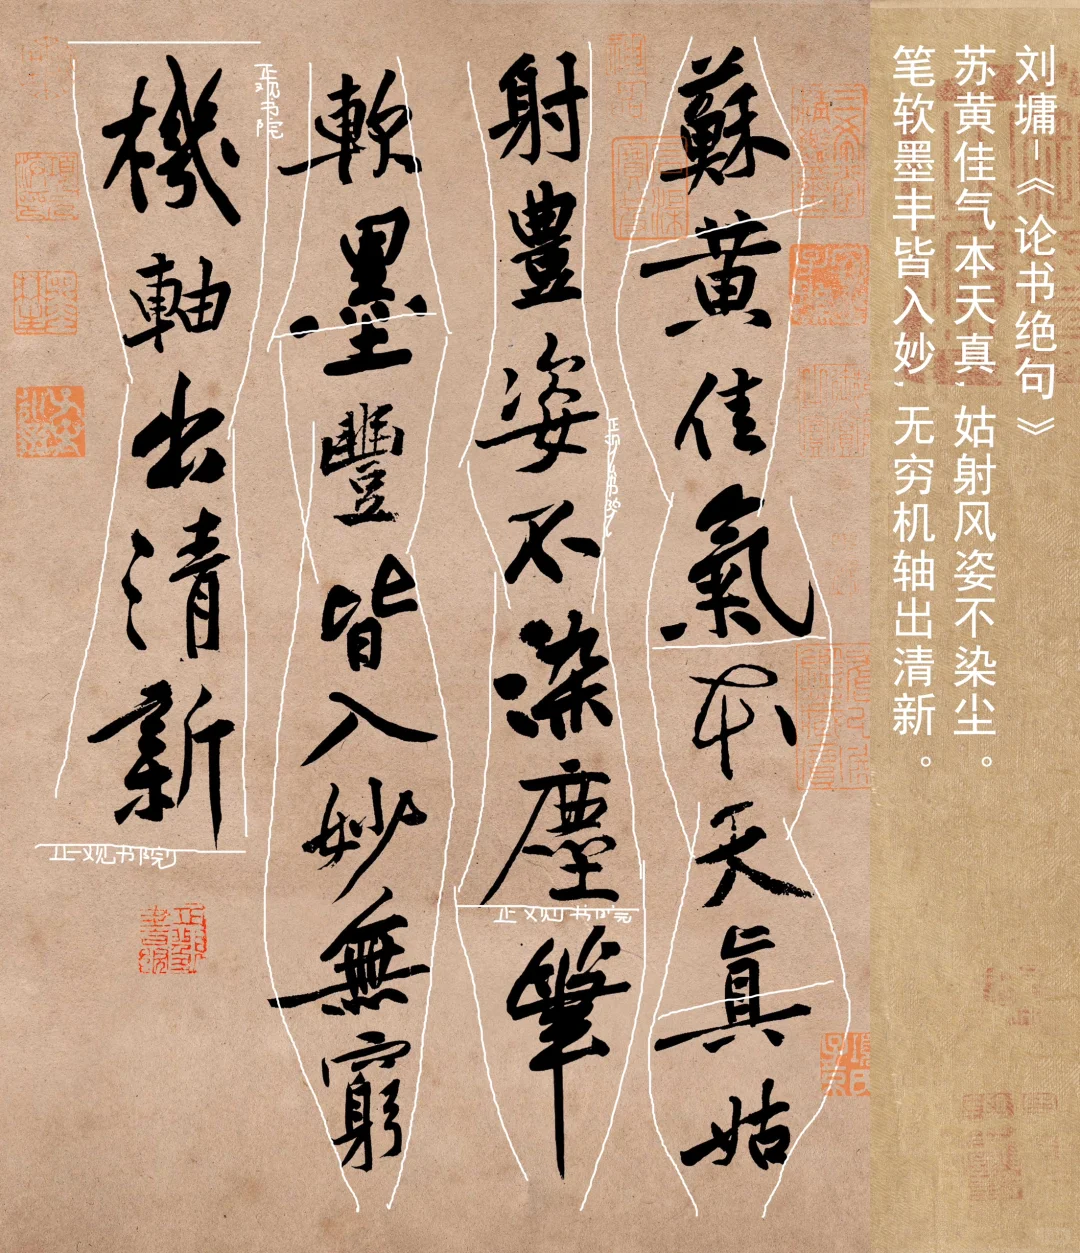 刘墉-《论书绝句》
苏黄佳气本天真,姑射风姿不染尘。
笔软墨丰皆入妙,无穷机轴出清新。
蘇黄佳氣本天真姑
射豊姿不染塵筆
軟墨豐皆入妙無窮
機軸出清新
正观书院
正观书院
正观书院
正观书院